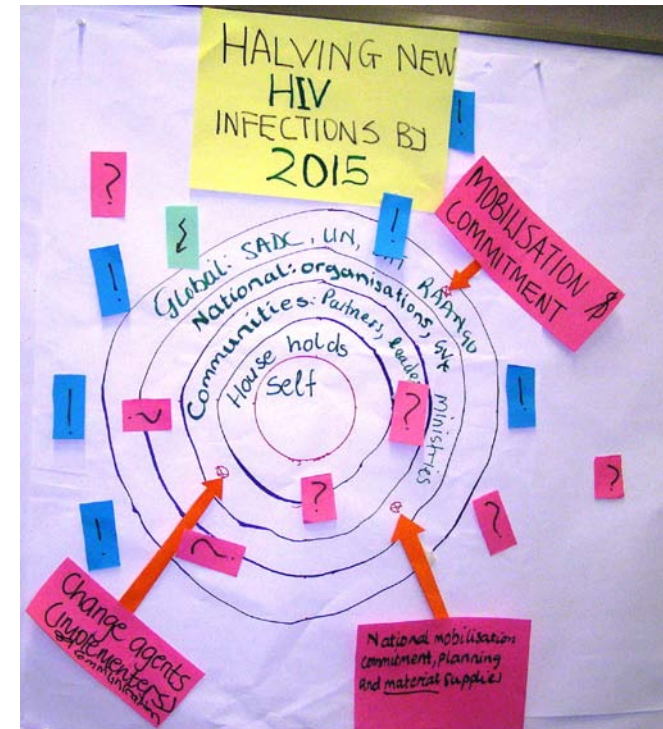 HALVING NEW
HIV
INFECTIONS BY
2015
MOBILISATION &
COMMITMENT
Global: SADC, UN,
National: organisations, Gvt ministries
Communities: Partners, leade
House holds
self
?
!
!
!
?
!
?
!
?
?
!
Change agents
(implementers)
of communication
National mobilisation
commitment, Planning
and material Supplies